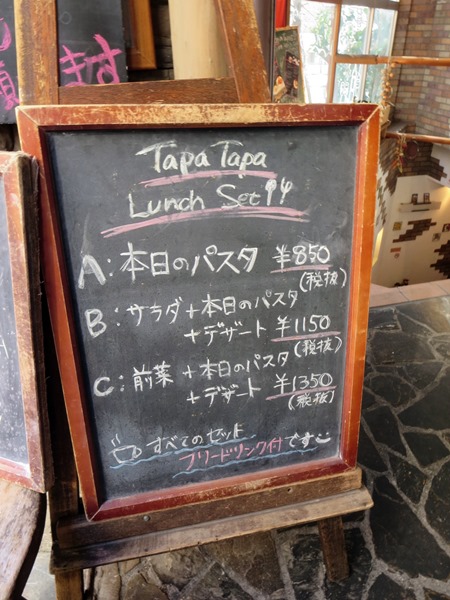 ます
Tapa Tapa
Lunch Set
A:本日のパスタ ¥850
(税抜)
B:サラダ+本日のパスタ
+デザート ¥1150
(税抜)
C:前菜+本日のパスタ
+デザート ¥1350
(税抜)
すべてのセット
フリードリンク付です